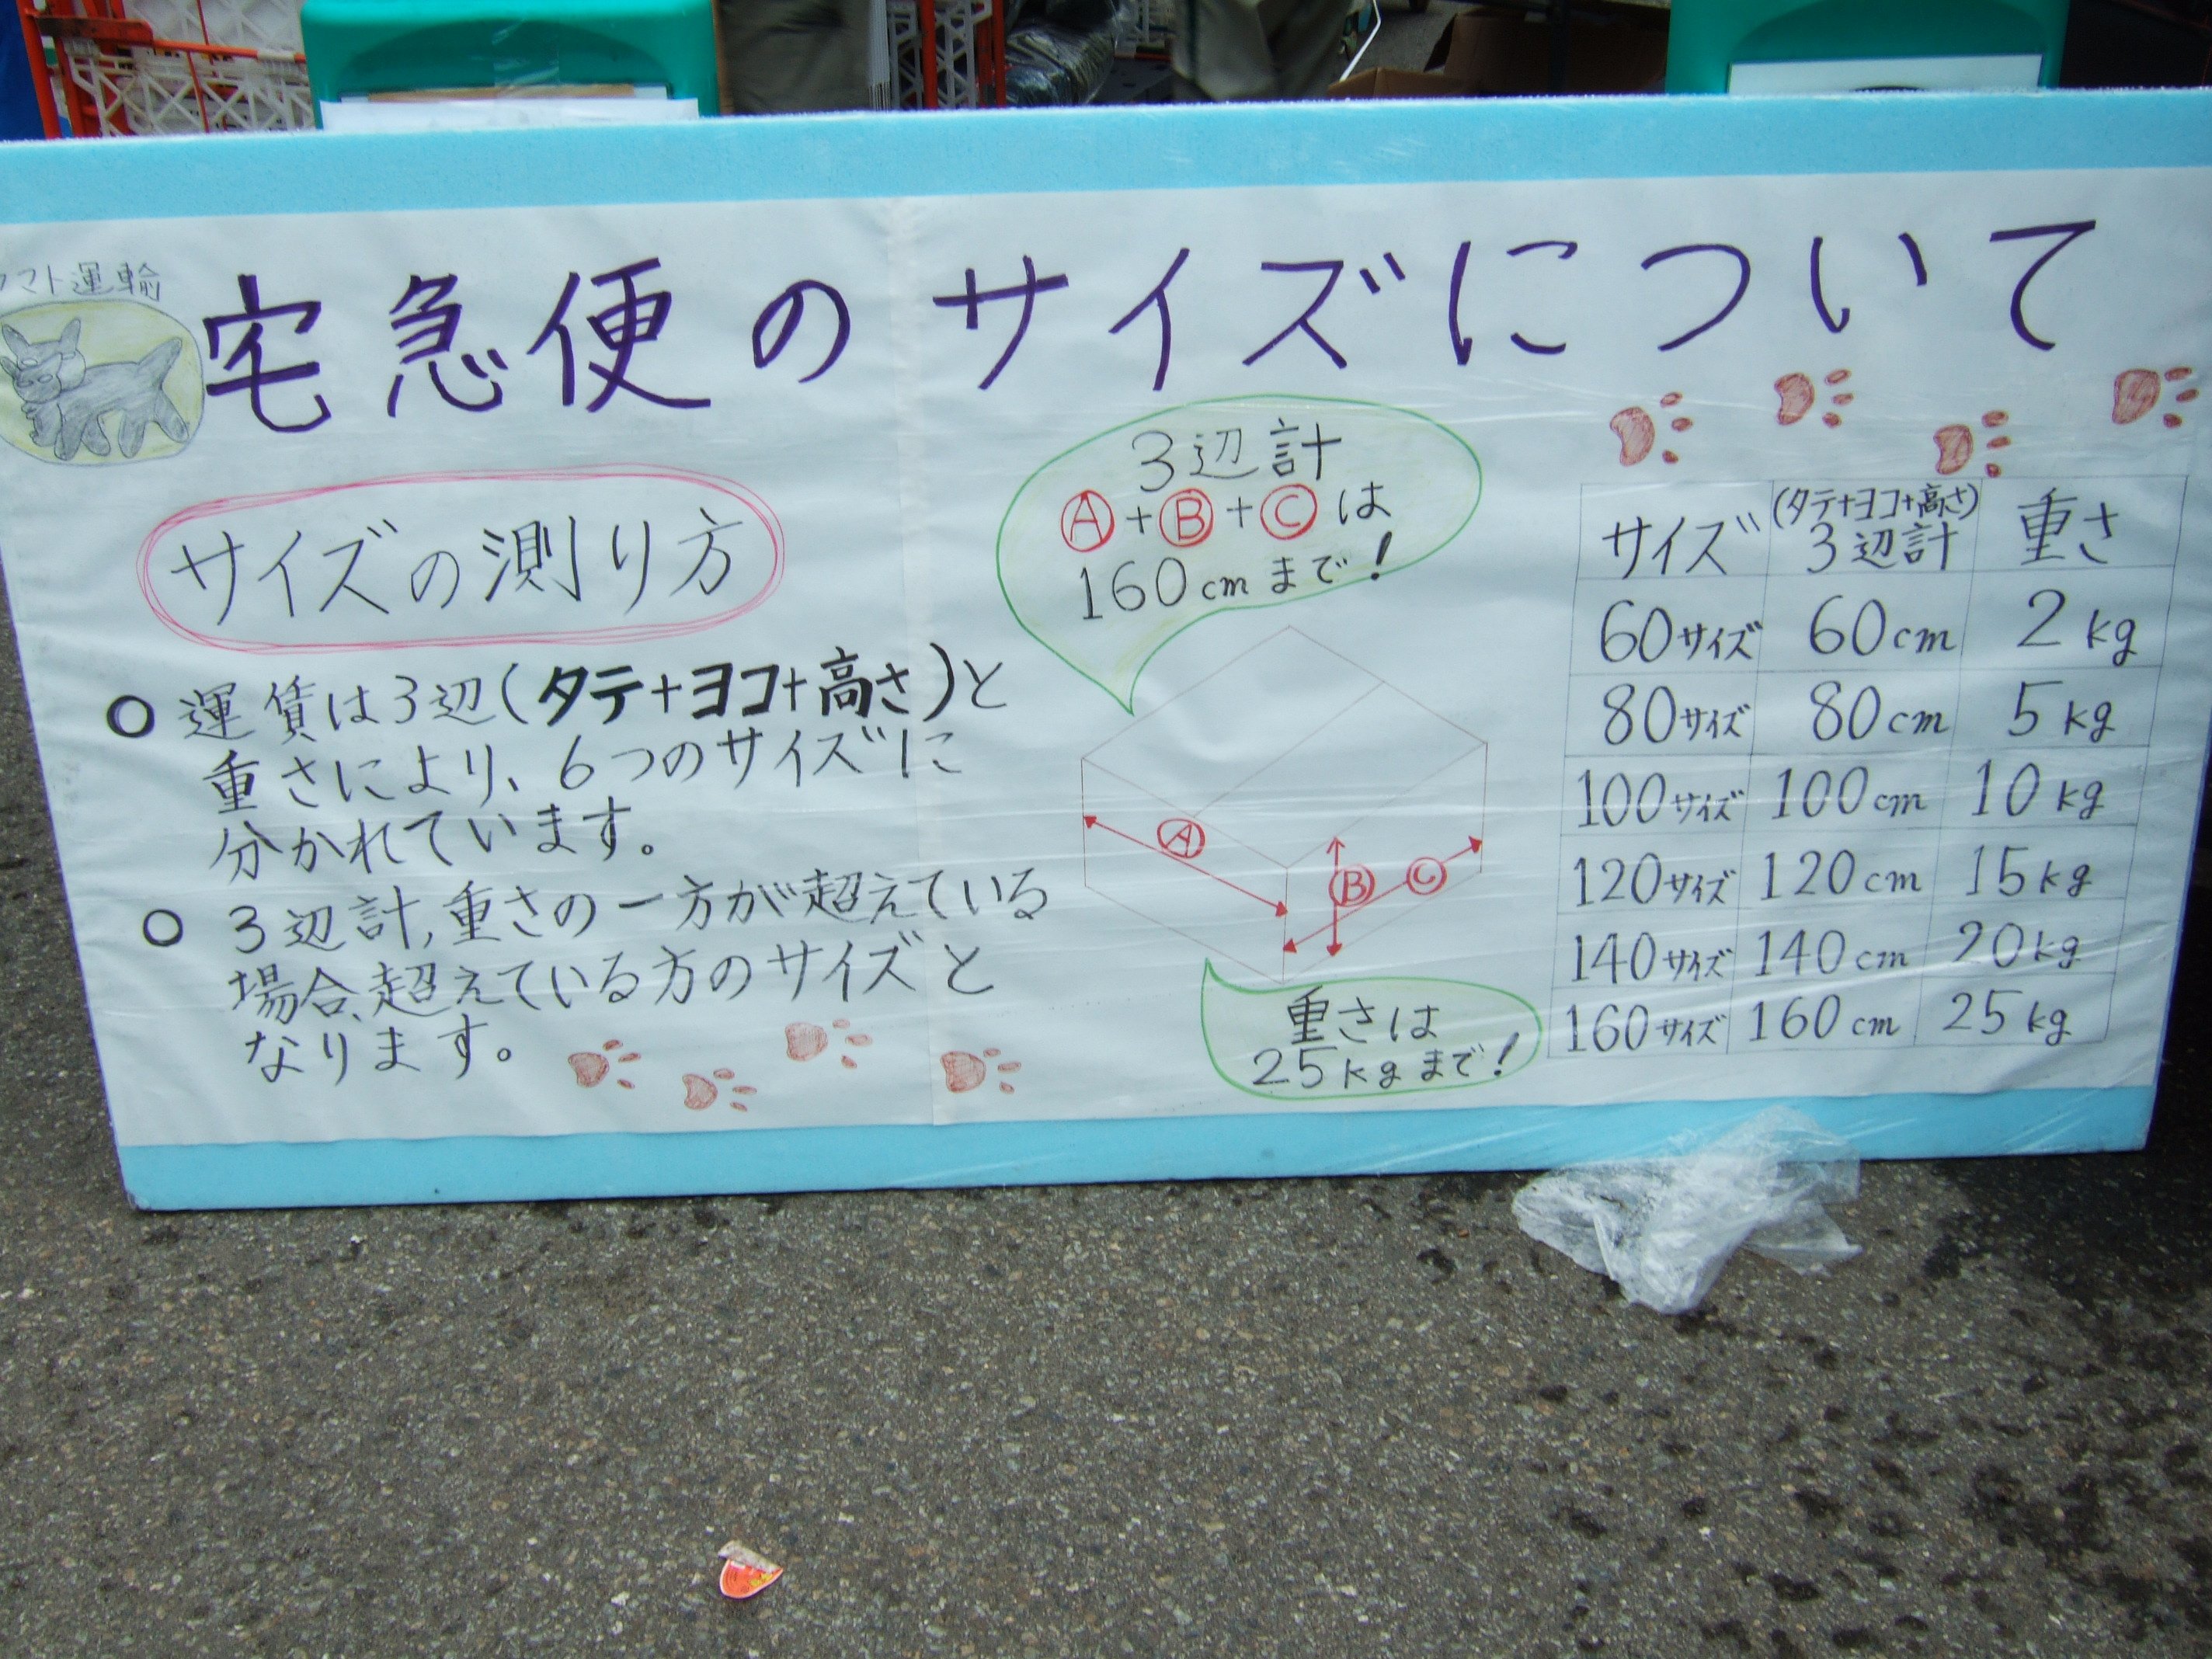 ヤマト運輸
宅急便のサイズについて
サイズの測り方
○ 運賃は3辺(タテ+ヨコ+高さ)と
重さにより、6つのサイズに
分かれています。
○ 3辺計,重さの一方が超えている
場合、超えている方のサイズと
なります。
3辺計
Ⓐ+Ⓑ+Ⓒは
160cmまで!
Ⓐ
Ⓑ
Ⓒ
重さは
25kgまで!
サイズ (タテ+ヨコ+高さ)3辺計 重さ
60サイズ 60cm 2kg
80サイズ 80cm 5kg
100サイズ 100cm 10kg
120サイズ 120cm 15kg
140サイズ 140cm 20kg
160サイズ 160cm 25kg